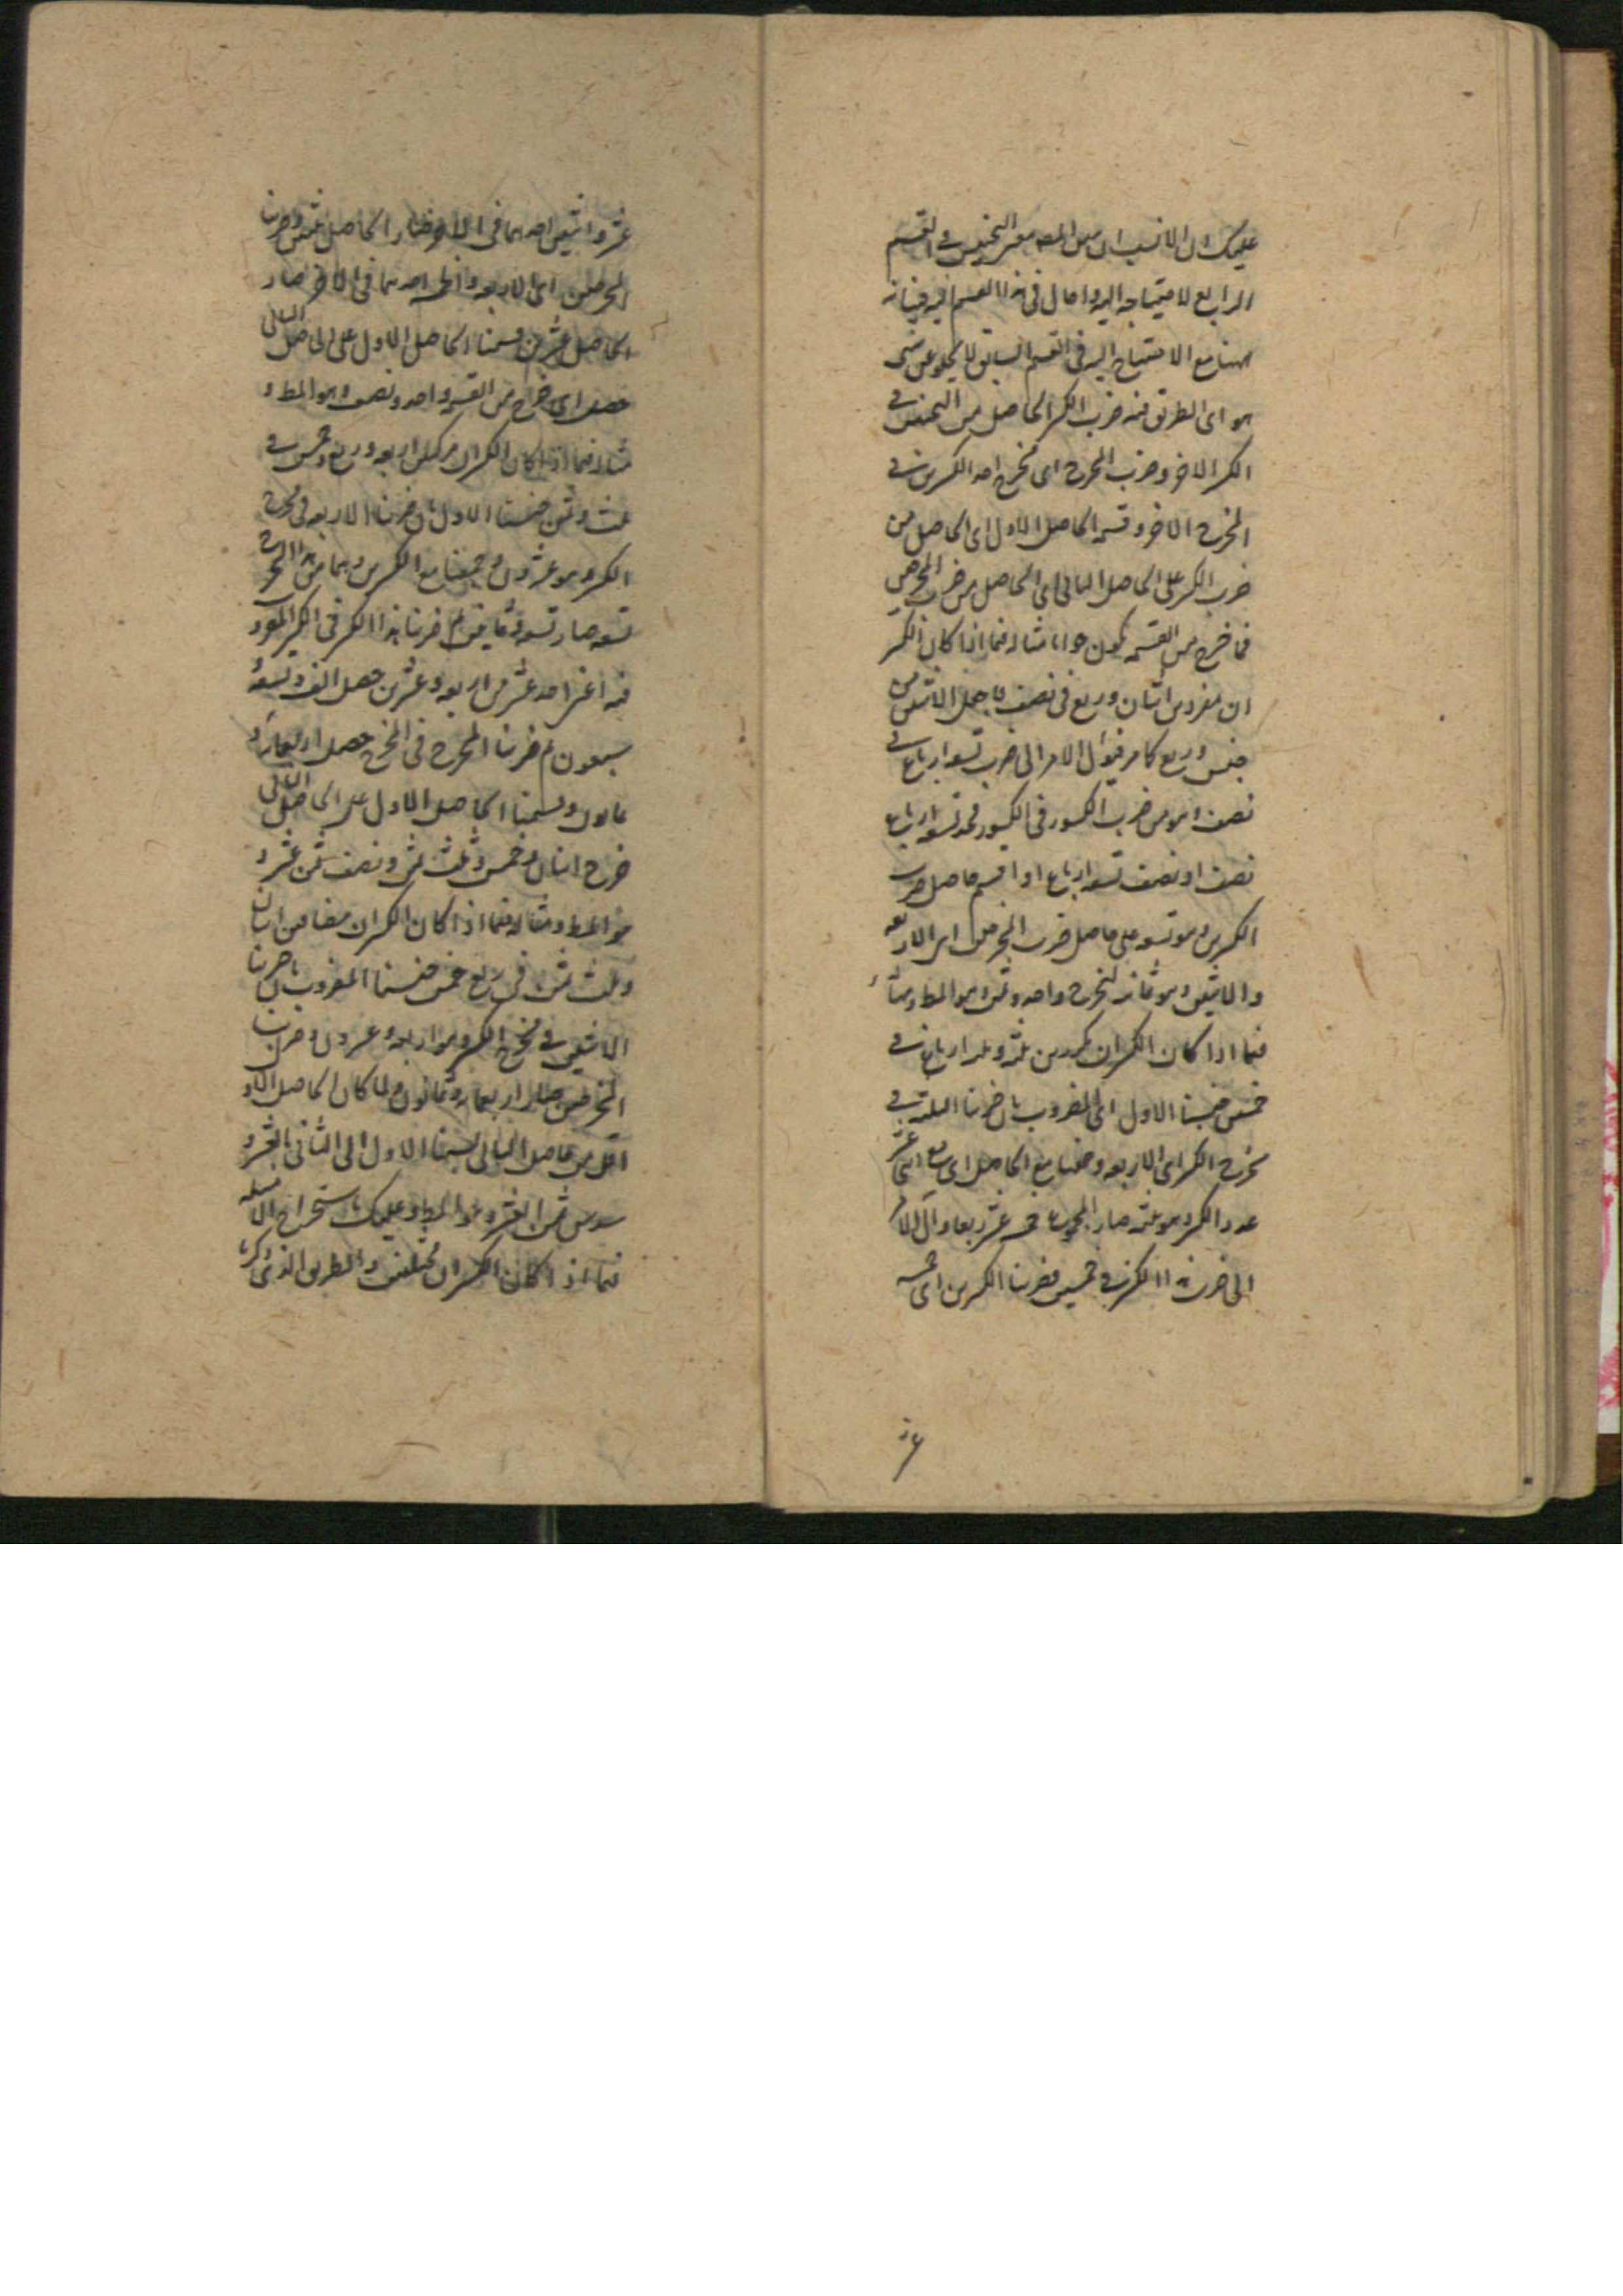 عليك ان الانسب ان يبين المصـ معنى التجنيس في القسم
الرابع لاحتياجه اليه واما ال في هذا القسم فبيانه
ههنا مع الاحتياج اليه في القسم السابق لا يخلو عن شئ
هو اى الطريق فيه ضرب الكسر الحاصل من التجنيس في
الكسر الاخر وضرب المخرج اى مخرج احد الكسرين في
المخرج الاخر وقسمة الحاصل الاول اى الحاصل من
ضرب الكسر على الحاصل الثانى اى الحاصل من ضرب المخرجين
فما خرج من القسمة يكون جوابا مثاله فيما اذا كان الكسر
ان مفردين اثنان وربع في نصف فاجعل الاثنين من
جنس ربع كما مر فيؤل الامر الى ضرب تسعة ارباع في
نصف وهو من ضرب الكسور في الكسور فخذ تسعة ارباع
نصف او نصف تسعة ارباع او اقسم حاصل ضرب
الكسرين وهو تسعة على حاصل ضرب المخرجين اى الاربعة
والاثنين وهو ثمانية ليخرج واحد وثمن وهو المط ومثاله
فيما اذا كان الكسران مكررين ثلثة وثلثة ارباع في
خمسين جنسنا الاول اى المضروب بان ضربنا الثلثة في
مخرج الكسر اى الاربعة وجمعنا مع الحاصل اى مع اثنى عشر
عدد الكسر وهو ثلثة صار المجموع خمسة عشر ربعا وآل الامر
الى ضرب هذا الكسر في خمسين فضربنا الكسرين اى خمسة
عشر
عشر واثنين احدهما في الاخر فصار الحاصل ثلثين وضربنا
المخرجين اى الاربعة والخمسة احدهما في الاخر صار
الحاصل عشرين وقسمنا الحاصل الاول على الحاصل الثانى
حصل اى خرج من القسمة واحد ونصف وهو المط و
مثاله فيما اذا كان الكسران مركبين اربعة وربع وخمس في
ثلث وثمن جنسنا الاول بان ضربنا الاربعة في مخرج
الكسر وهو عشرون وجمعنا مع الكسرين وهما من هذا المخرج
تسعة صار تسعة وثمانين ثم ضربنا هذا الكسر في الكسر المضروب
فيه اعنى احد عشر من اربعة وعشرين حصل الف وتسعة
سبعون ثم ضربنا المخرج في المخرج حصل اربعمائة و
ثمانون وقسمنا الحاصل الاول على الحاصل الثانى
خرج اثنان وخمس وثلث ثمن ونصف ثمن عشر و
هو المط ومثاله فيما اذا كان الكسران مضافين اثنان
وثلث ثمن في ربع خمس جنسنا المضروب بان ضربنا
الاثنين في مخرج الكسر وهو اربعة وعشرون وضربنا
المخرجين صار اربعمائة وثمانون ولما كان الحاصل الاول
اقل من حاصل الثانى نسبنا الاول الى الثانى بالعشر و
سدس ثمن العشر وهو المط وعليك باستخراج الامثلة
فيما اذا كان الكسران مختلفين والطريق الذى ذكرنا